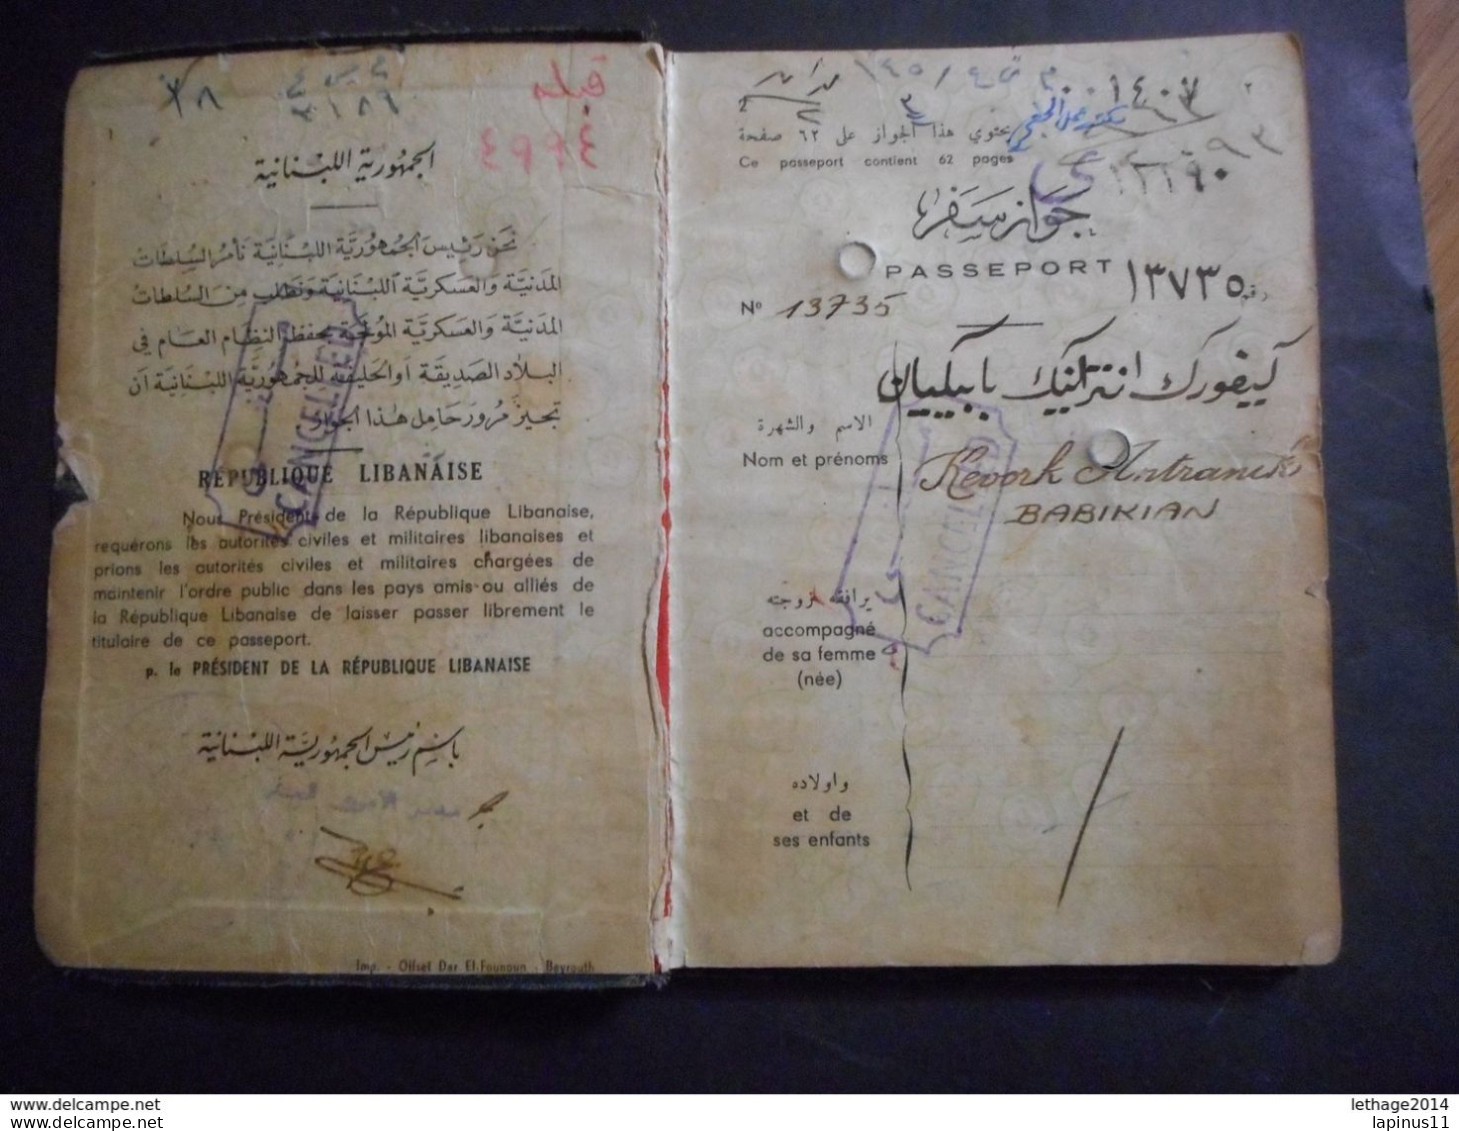 ٣١٨٦
قبله
٤٩٩٤
الجمهورية اللبنانية
نحن رئيس الجمهورية اللبنانية نأمر السلطات
المدنية والعسكرية اللبنانية ونطلب من السلطات
المدنية والعسكرية الموكلة بحفظ النظام العام في
البلاد الصديقة أو الحليفة للجمهورية اللبنانية أن
تجيز مرور حامل هذا الجواز.
CANCELLED
RÉPUBLIQUE LIBANAISE
Nous Président de la République Libanaise,
requérons les autorités civiles et militaires libanaises et
prions les autorités civiles et militaires chargées de
maintenir l'ordre public dans les pays amis ou alliés de
la République Libanaise de laisser passer librement le
titulaire de ce passeport.
p. le PRÉSIDENT DE LA RÉPUBLIQUE LIBANAISE
باسم رئيس الجمهورية اللبنانية
Imp. - Offset Dar El Founoun - Beyrouth
١٤٠٧
يحتوي هذا الجواز على ٦٢ صفحة
Ce passeport contient 62 pages
جواز سفر
PASSEPORT
رقم ١٣٧٣٥
Nº 13735
كيفورك انترانيك بابيكيان
الاسم والشهرة
Nom et prénoms
Kevork Antranik
BABIKIAN
CANCELLED
يرافقه زوجته
accompagné
de sa femme
(née)
واولاده
et de
ses enfants
www.delcampe.net
www.delcampe.net
lethage2014
lapinus11